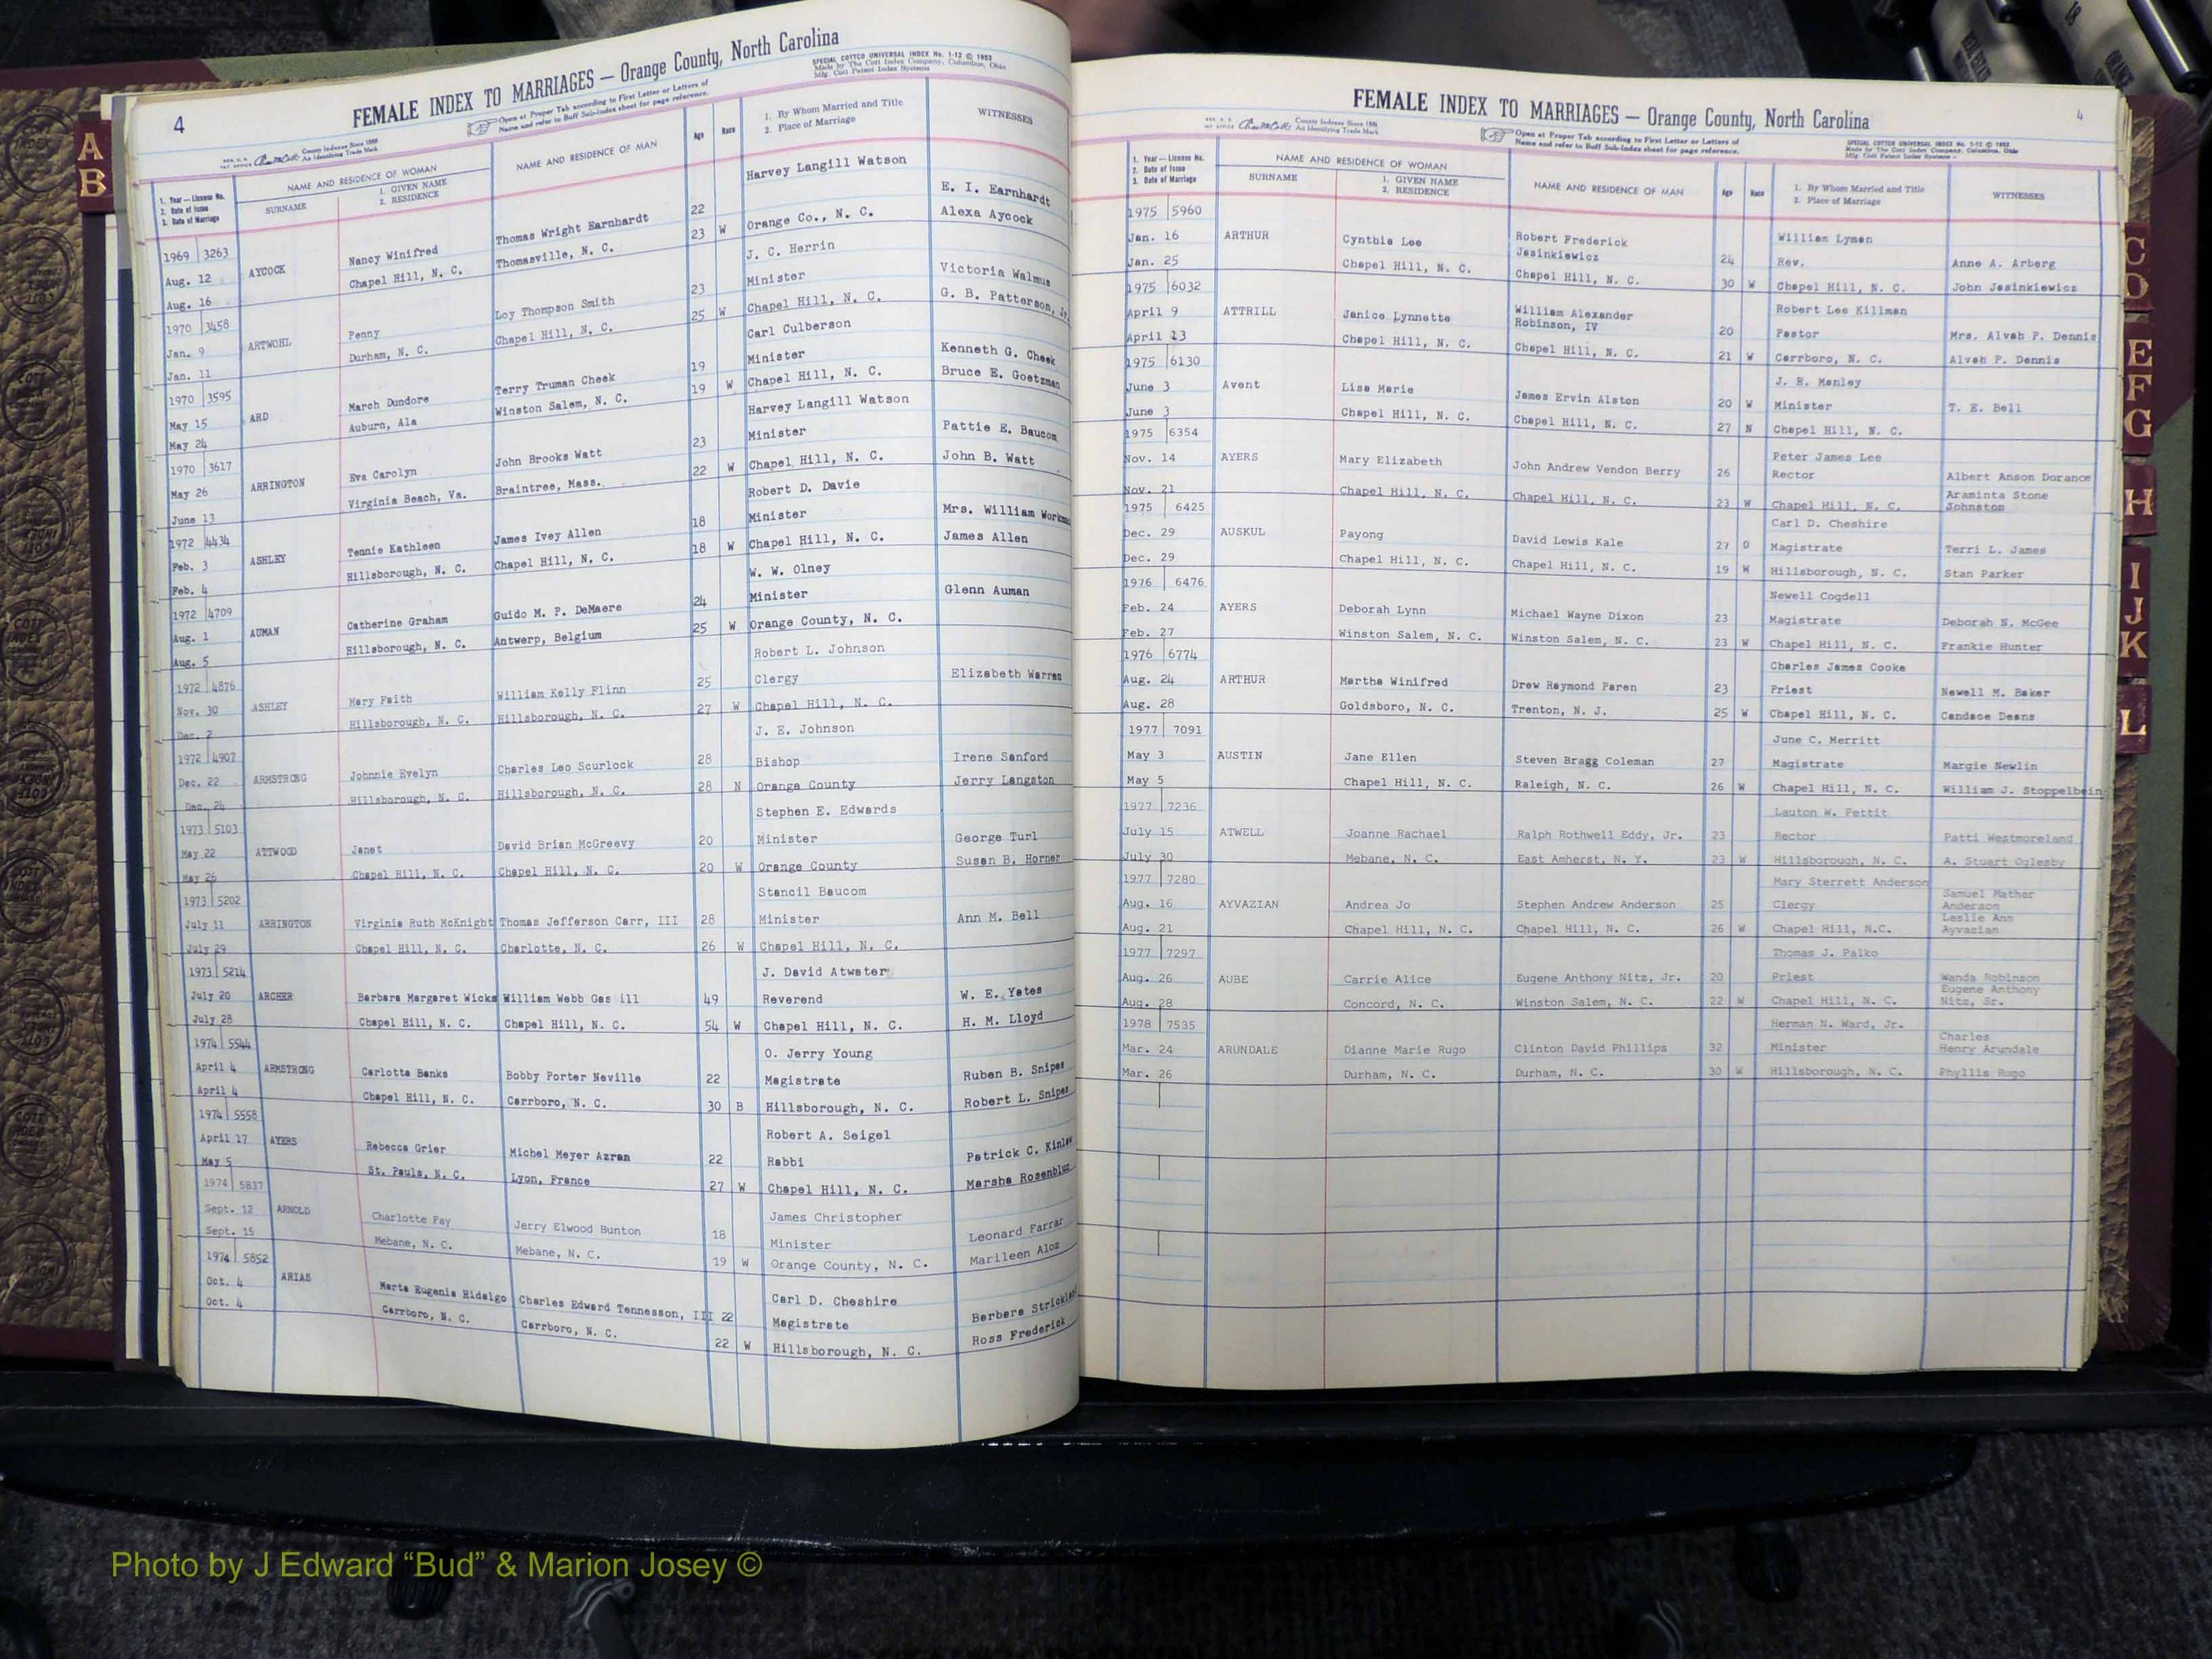 4
FEMALE INDEX TO MARRIAGES — Orange County, North Carolina
SPECIAL COTTCO UNIVERSAL INDEX No. 1-12 © 1952
Made by The Cott Index Company, Columbus, Ohio
Mfg. Cott Patent Index Systems
County Indexes Since 1888
An Identifying Trade Mark
Open at Proper Tab according to First Letter or Letters of
Name and refer to Buff Sub-Index sheet for page reference.
1. Year — License No.
2. Date of Issue
3. Date of Marriage
NAME AND RESIDENCE OF WOMAN
SURNAME
1. GIVEN NAME
2. RESIDENCE
NAME AND RESIDENCE OF MAN
Age
Race
1. By Whom Married and Title
2. Place of Marriage
WITNESSES
Harvey Langill Watson
1969 3263 Nancy Winifred Thomas Wright Earnhardt 22 E. I. Earnhardt
Aug. 12 AYCOCK Chapel Hill, N. C. Thomasville, N. C. 23 W Orange Co., N. C. Alexa Aycock
Aug. 16 J. C. Herrin
1970 3458 Penny Loy Thompson Smith 23 Minister Victoria Walmus
Jan. 9 ARTWOHL Durham, N. C. Chapel Hill, N. C. 25 W Chapel Hill, N. C. G. B. Patterson, Jr.
Jan. 11 Carl Culberson
1970 3595 March Dundore Terry Truman Cheek 19 Minister Kenneth G. Cheek
May 15 ARD Auburn, Ala Winston Salem, N. C. 19 W Chapel Hill, N. C. Bruce E. Goetzman
May 24 Harvey Langill Watson
1970 3617 Eva Carolyn John Brooks Watt 23 Minister Pattie E. Baucom
May 26 ARRINGTON Virginia Beach, Va. Braintree, Mass. 22 W Chapel Hill, N. C. John B. Watt
June 13 Robert D. Davie
1972 4434 Tennie Kathleen James Ivey Allen 18 Minister Mrs. William
Feb. 3 ASHLEY Hillsborough, N. C. Chapel Hill, N. C. 18 W Chapel Hill, N. C. James Allen
Feb. 4 W. W. Olney
1972 4709 Catherine Graham Guido M. P. DeMaere 24 Minister Glenn Auman
Aug. 1 AUMAN Hillsborough, N. C. Antwerp, Belgium 25 W Orange County, N. C.
Aug. 5 Robert L. Johnson
1972 4876 Mary Faith William Kelly Flinn 25 Clergy Elizabeth Warren
Nov. 30 ASHLEY Hillsborough, N. C. Hillsborough, N. C. 27 W Chapel Hill, N. C.
Dec. 2 J. E. Johnson
1972 4907 Johnnie Evelyn Charles Leo Scurlock 28 Bishop Irene Sanford
Dec. 22 ARMSTRONG Hillsborough, N. C. Hillsborough, N. C. 28 N Orange County Jerry Langston
Dec. 24 Stephen E. Edwards
1973 5103 Janet David Brian McGreevy 20 Minister George Turl
May 22 ATTWOOD Chapel Hill, N. C. Chapel Hill, N. C. 20 W Orange County Susan B. Horner
May 26 Stancil Baucom
1973 5202
July 11 ARRINGTON Virginia Ruth McKnight Thomas Jefferson Carr, III 28 Minister Ann M. Bell
July 29 Chapel Hill, N. C. Charlotte, N. C. 26 W Chapel Hill, N. C.
1973 5214 J. David Atwater
July 20 ARCHER Barbara Margaret Wicks William Webb Gas ill 49 Reverend W. E. Yates
July 28 Chapel Hill, N. C. Chapel Hill, N. C. 54 W Chapel Hill, N. C. H. M. Lloyd
1974 5544 O. Jerry Young
April 4 ARMSTRONG Carlotta Banks Bobby Porter Neville 22 Magistrate Ruben B. Snipes
April 4 Chapel Hill, N. C. Carrboro, N. C. 30 B Hillsborough, N. C. Robert L. Snipes
1974 5558 Robert A. Seigel
April 17 AYERS Rebecca Grier Michel Meyer Azran 22 Rabbi Patrick C.
May 5 St. Pauls, N. C. Lyon, France 27 W Chapel Hill, N. C. Marsha
1974 5837 James Christopher
Sept. 12 ARNOLD Charlotte Fay Jerry Elwood Bunton 18 Minister Leonard Farrar
Sept. 15 Mebane, N. C. Mebane, N. C. 19 W Orange County, N. C. Marileen Aloz
1974 5852 Carl D. Cheshire
Oct. 4 ARIAS Marta Eugenia Hidalgo Charles Edward Tennesson, III 22 Magistrate Barbara
Oct. 4 Carrboro, N. C. Carrboro, N. C. 22 W Hillsborough, N. C. Ross Frederick
FEMALE INDEX TO MARRIAGES — Orange County, North Carolina
4
County Indexes Since 1888
An Identifying Trade Mark
Open at Proper Tab according to First Letter or Letters of
Name and refer to Buff Sub-Index sheet for page reference.
SPECIAL COTTCO UNIVERSAL INDEX No. 1-12 © 1952
Made by The Cott Index Company, Columbus, Ohio
Mfg. Cott Patent Index Systems
1. Year — License No.
2. Date of Issue
3. Date of Marriage
NAME AND RESIDENCE OF WOMAN
SURNAME
1. GIVEN NAME
2. RESIDENCE
NAME AND RESIDENCE OF MAN
Age
Race
1. By Whom Married and Title
2. Place of Marriage
WITNESSES
1975 5960 William Lyman
Jan. 16 ARTHUR Cynthia Lee Robert Frederick Jasinkiewicz 24 Rev. Anne A. Arberg
Jan. 25 Chapel Hill, N. C. Chapel Hill, N. C. 30 W Chapel Hill, N. C. John Jasinkiewicz
1975 6032 Robert Lee Killman
April 9 ATTRILL Janice Lynnette William Alexander Robinson, IV 20 Pastor Mrs. Alvah P. Dennis
April 13 Chapel Hill, N. C. Chapel Hill, N. C. 21 W Carrboro, N. C. Alvah P. Dennis
1975 6130 J. R. Manley
June 3 Avent Lisa Marie James Ervin Alston 20 W Minister T. E. Bell
June 3 Chapel Hill, N. C. Chapel Hill, N. C. 27 N Chapel Hill, N. C.
1975 6354 Peter James Lee
Nov. 14 AYERS Mary Elizabeth John Andrew Vendon Berry 26 Rector Albert Anson Dorance
Nov. 21 Chapel Hill, N. C. Chapel Hill, N. C. 23 W Chapel Hill, N. C. Araminta Stone Johnston
1975 6425 Carl D. Cheshire
Dec. 29 AUSKUL Payong David Lewis Kale 27 O Magistrate Terri L. James
Dec. 29 Chapel Hill, N. C. Chapel Hill, N. C. 19 W Hillsborough, N. C. Stan Parker
1976 6476 Newell Cogdell
Feb. 24 AYERS Deborah Lynn Michael Wayne Dixon 23 Magistrate Deborah N. McGee
Feb. 27 Winston Salem, N. C. Winston Salem, N. C. 23 W Chapel Hill, N. C. Frankie Hunter
1976 6774 Charles James Cooke
Aug. 24 ARTHUR Martha Winifred Drew Raymond Paren 23 Priest Newell M. Baker
Aug. 28 Goldsboro, N. C. Trenton, N. J. 25 W Chapel Hill, N. C. Candace Deans
1977 7091 June C. Merritt
May 3 AUSTIN Jane Ellen Steven Bragg Coleman 27 Magistrate Margie Newlin
May 5 Chapel Hill, N. C. Raleigh, N. C. 26 W Chapel Hill, N. C. William J. Stoppelbein
1977 7236 Lauton W. Pettit
July 15 ATWELL Joanne Rachael Ralph Rothwell Eddy, Jr. 23 Rector Patti Westmoreland
July 30 Mebane, N. C. East Amherst, N. Y. 23 W Hillsborough, N. C. A. Stuart Oglesby
1977 7280 Mary Sterrett Anderson
Aug. 16 AYVAZIAN Andrea Jo Stephen Andrew Anderson 25 Clergy Samuel Mather Anderson
Aug. 21 Chapel Hill, N. C. Chapel Hill, N. C. 26 W Chapel Hill, N.C. Leslie Ann Ayvazian
1977 7297 Thomas J. Palko
Aug. 26 AUBE Carrie Alice Eugene Anthony Nitz, Jr. 20 Priest Wanda Robinson
Aug. 28 Concord, N. C. Winston Salem, N. C. 22 W Chapel Hill, N. C. Eugene Anthony Nitz, Sr.
1978 7535 Herman N. Ward, Jr.
Mar. 24 ARUNDALE Dianne Marie Rugo Clinton David Phillips 32 Minister Charles Henry Arundale
Mar. 26 Durham, N. C. Durham, N. C. 30 W Hillsborough, N. C. Phyllis Rugo
A
B
C
D
E
F
G
H
I
J
K
L
Photo by J Edward “Bud” & Marion Josey ©